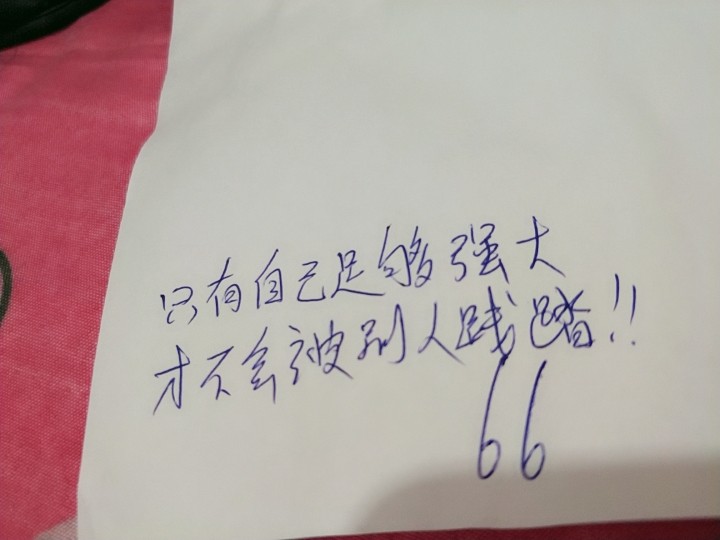 只有自己足够强大
才不会被别人践踏!!
66